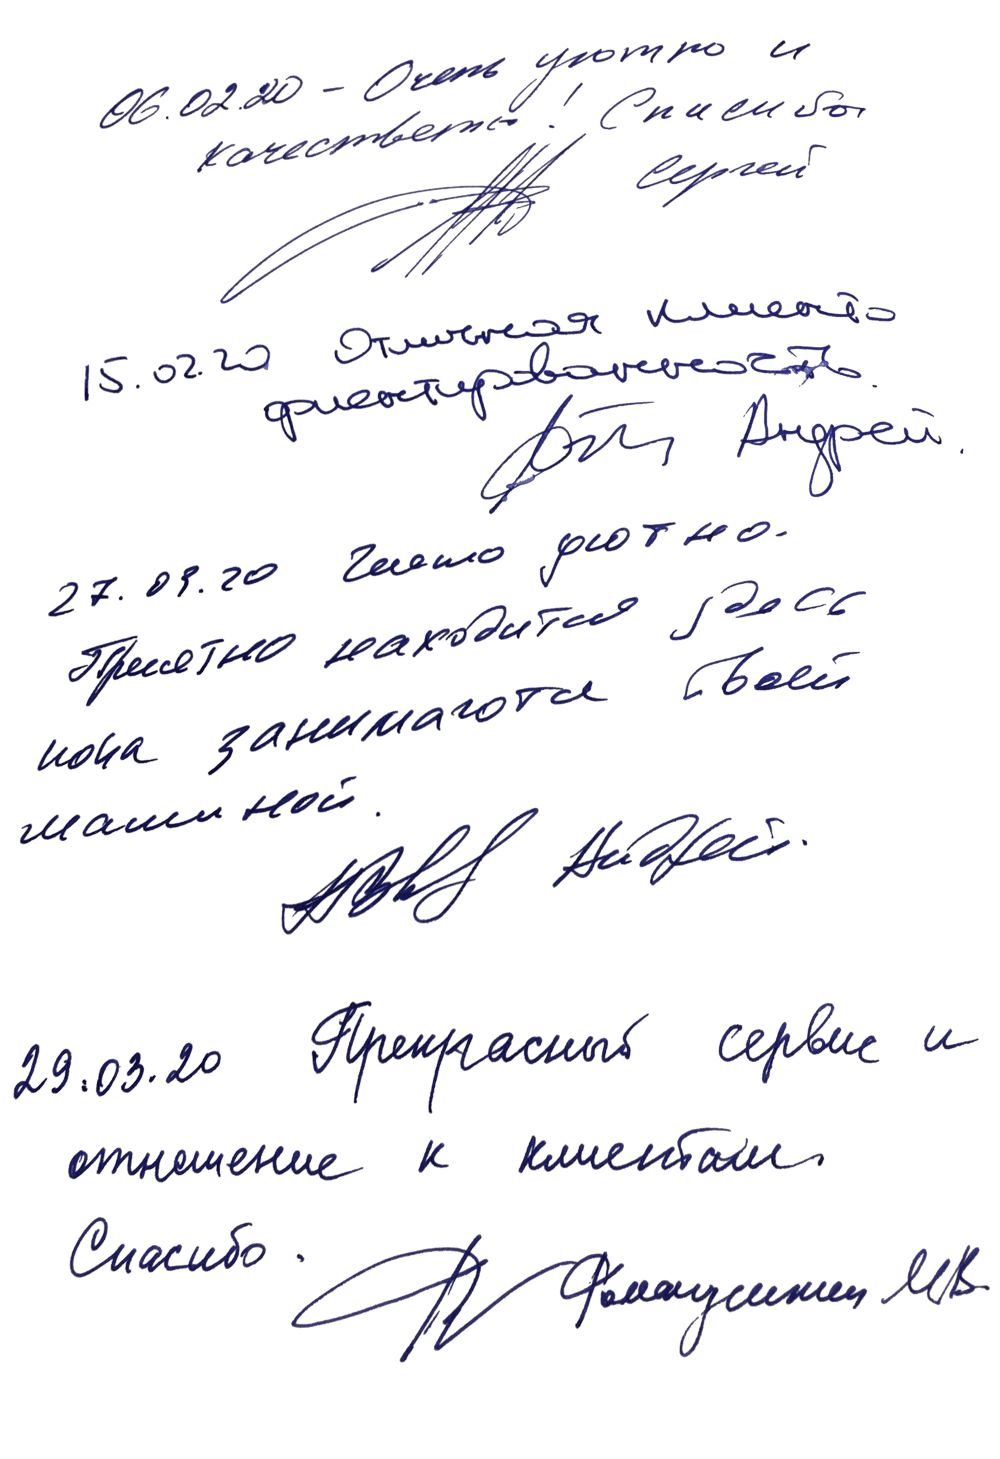 06.02.20 – Очень уютно и
качественно! Спасибо
Сергей
15.02.20 Отличная клиенто
риентированность.
Андрей.
27.03.20 Чисто уютно.
Приятно находится здесь
пока занимаются твоей
машиной.
Андрей.
29.03.20 Прекрасный сервис и
отношение к клиентам.
Спасибо.
МВ